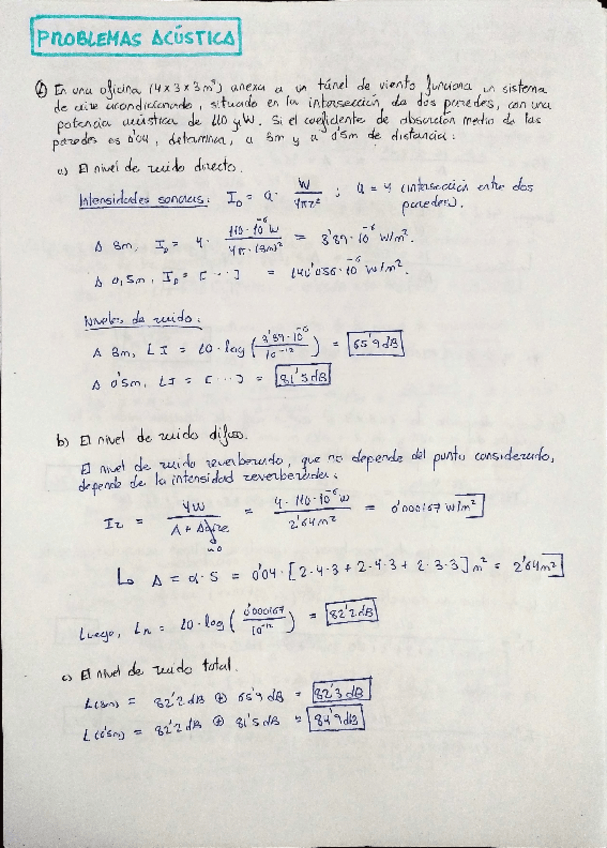 PROBLEMAS ACÚSTICA
① En una oficina (4x3x3 m³) anexa a un túnel de viento funciona un sistema
de aire acondicionado, situado en la intersección de dos paredes, con una
potencia acústica de 110 µW. Si el coeficiente de absorción medio de las
paredes es 0'04, determina, a 3m y a 0'5m de distancia:
a) El nivel de ruido directo.
Intensidades sonoras: I_D = Q · W / 4πr² ; Q = 4 (intersección entre dos
paredes).
A 3m, I_D = 4 · 110·10⁻⁶ W / 4π·(3m)² = 3'89·10⁻⁶ W/m².
A 0,5m, I_D = [...] = 140'056·10⁻⁶ W/m².
Niveles de ruido:
A 3m, LI = 10·log (3'89·10⁻⁶ / 10⁻¹²) = 65'9 dB
A 0'5m, LI = [...] = 81'5 dB
b) El nivel de ruido difuso.
El nivel de ruido reverberado, que no depende del punto considerado,
depende de la intensidad reverberada:
Ir = 4W / A + = 4·110·10⁻⁶ W / 2'64 m² = 0'000167 W/m²
↳ A = α·S = 0'04·[2·4·3 + 2·4·3 + 2·3·3] m² = 2'64 m²
Luego, L_R = 10·log (0'000167 / 10⁻¹²) = 82'2 dB
c) El nivel de ruido total.
L(3m) = 82'2 dB ⊕ 65'9 dB = 82'3 dB
L(0'5m) = 82'2 dB ⊕ 81'5 dB = 84'9 dB